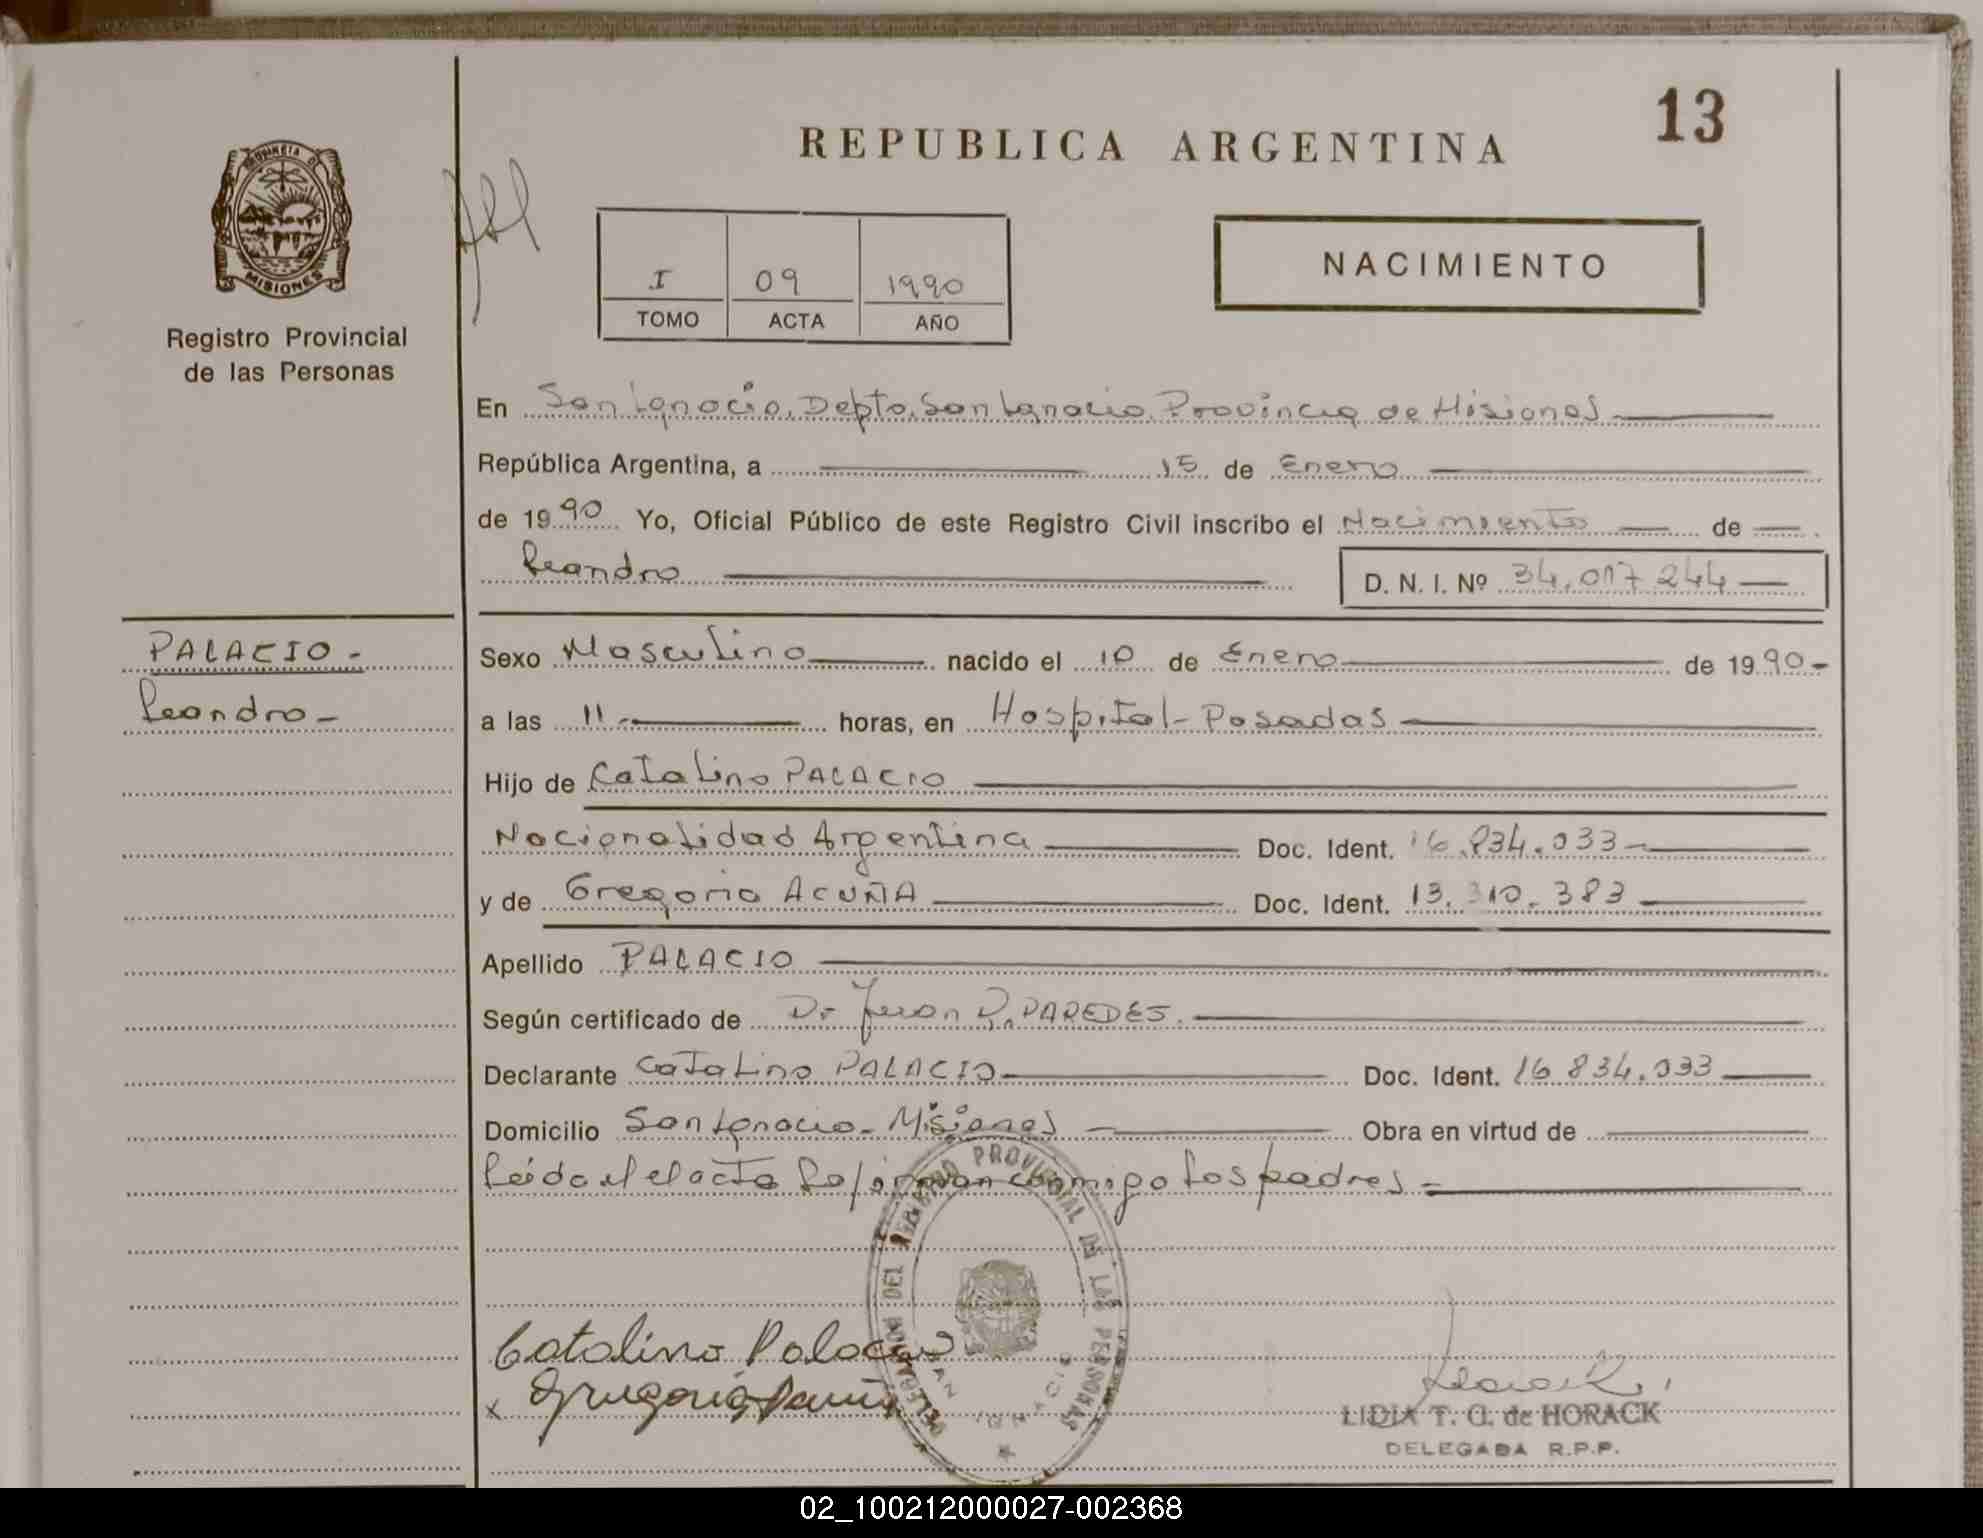 13
REPUBLICA ARGENTINA
PROVINCIA DE
MISIONES
Registro Provincial
de las Personas
I 09 1990
TOMO ACTA AÑO
NACIMIENTO
En San Ignacio, Depto. San Ignacio, Provincia de Misiones
República Argentina, a 15 de Enero
de 1990 Yo, Oficial Público de este Registro Civil inscribo el Nacimiento de
Leandro D. N. I. Nº 34.017.244
PALACIO -
Leandro -
Sexo Masculino nacido el 10 de Enero de 1990-
a las 11- horas, en Hospital - Posadas
Hijo de Catalino PALACIO
Nacionalidad Argentina Doc. Ident. 16.834.033-
y de Gregoria ACUÑA Doc. Ident. 13.310.383
Apellido PALACIO
Según certificado de Dr Juan D. PAREDES.
Declarante Catalino PALACIO Doc. Ident. 16.834.033
Domicilio San Ignacio - Misiones Obra en virtud de
Leída el acta la firman conmigo los padres -
DELEGACION DEL REGISTRO PROVINCIAL DE LAS PERSONAS
SAN IGNACIO
Catalino Palacio
x Gregoria Acuña
LIDIA T. G. de HORACK
DELEGADA R.P.P.
02_100212000027-002368